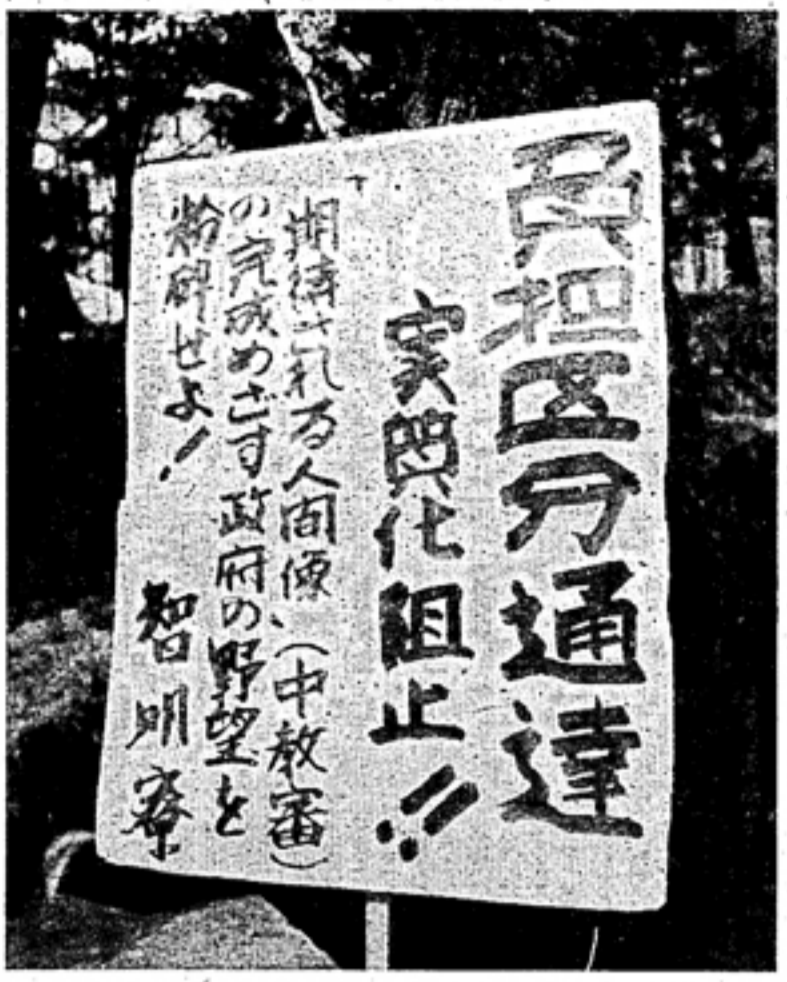 負担区分通達
実質化阻止!!
「期待される人間像」(中教審)
の完成めざす政府の野望を
粉砕せよ!
智明寮